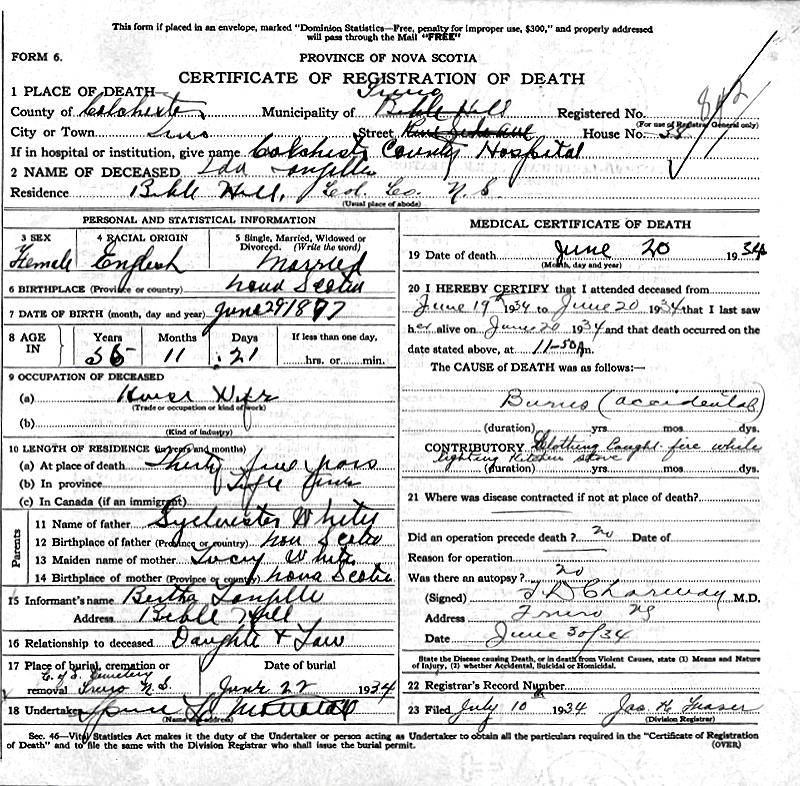 This form if placed in an envelope, marked "Dominion Statistics—Free, penalty for improper use, $300," and properly addressed
will pass through the Mail "FREE"
FORM 6.
PROVINCE OF NOVA SCOTIA
CERTIFICATE OF REGISTRATION OF DEATH
1 PLACE OF DEATH Truro
County of Colchester Municipality of Bible Hill Registered No. 842
(For use of Registrar General only)
City or Town Truro Street House No. 38
If in hospital or institution, give name Colchester County Hospital
2 NAME OF DECEASED Langille
Residence Bible Hill, Col. Co. N. S.
(Usual place of abode)
PERSONAL AND STATISTICAL INFORMATION
3 SEX 4 RACIAL ORIGIN 5 Single, Married, Widowed or
Divorced. (Write the word)
Female English Married
6 BIRTHPLACE (Province or country) Nova Scotia
7 DATE OF BIRTH (month, day and year) June 29 1877
8 AGE IN Years Months Days If less than one day,
11 21 hrs. or min.
9 OCCUPATION OF DECEASED
(a) House Wife
(Trade or occupation or kind of work)
(b)
(Kind of industry)
10 LENGTH OF RESIDENCE (in years and months)
(a) At place of death Thirty five years
(b) In province Life time
(c) In Canada (if an immigrant)
Parents
11 Name of father Sylvester White
12 Birthplace of father (Province or country) Nova Scotia
13 Maiden name of mother Lucy White
14 Birthplace of mother (Province or country) Nova Scotia
15 Informant's name Bertha Langille
Address Bible Hill
16 Relationship to deceased Daughter Law
17 Place of burial, cremation or Date of burial
Cemetery
removal Truro N.S. June 22 1934
18 Undertaker
(Name and address)
MEDICAL CERTIFICATE OF DEATH
19 Date of death June 20 1934
(Month, day and year)
20 I HEREBY CERTIFY that I attended deceased from
June 19th 1934 to June 20 1934 that I last saw
her alive on June 20 1934 and that death occurred on the
date stated above, at 11-50 m.
The CAUSE OF DEATH was as follows:—
Burns (accidental)
(duration) yrs. mos. dys.
CONTRIBUTORY Clothing Caught fire while
lighting Kitchen stove
(duration) yrs. mos. dys.
21 Where was disease contracted if not at place of death?
Did an operation precede death? no Date of
Reason for operation
Was there an autopsy? no
(Signed) M.D.
Address Truro NS
Date June 30/34
State the Disease causing Death, or in death from Violent Causes, state (1) Means and Nature
of Injury, (2) whether Accidental, Suicidal or Homicidal.
22 Registrar's Record Number
23 Filed July 10 1934 Jas. K. Fraser
(Division Registrar)
Sec. 46—Vital Statistics Act makes it the duty of the Undertaker or person acting as Undertaker to obtain all the particulars required in the "Certificate of Registration
of Death" and to file the same with the Division Registrar who shall issue the burial permit.
(OVER)